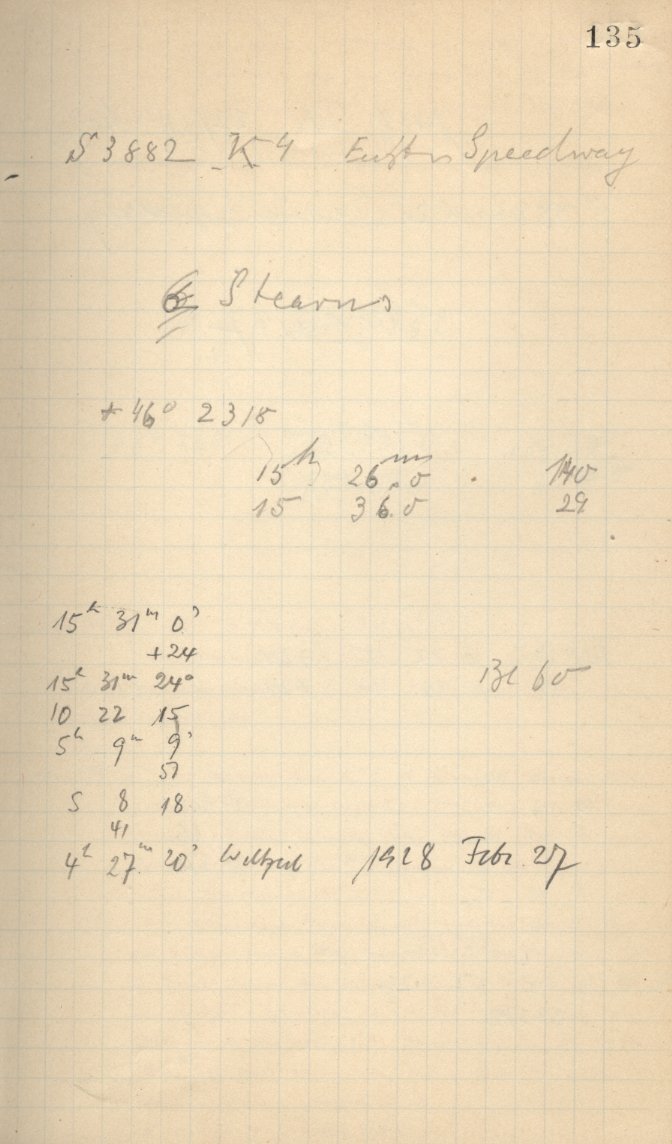 135
S 3882 K4 Speedway
6 Stearns
+46° 2318
15h 26m.0 140
15 36.0 29
15h 31m 0s
+24
15h 31m 24s
10 22 15
5h 9m 9s
51
5 8 18
41
4h 27m 20s Weltzeit 1928 Febr. 27